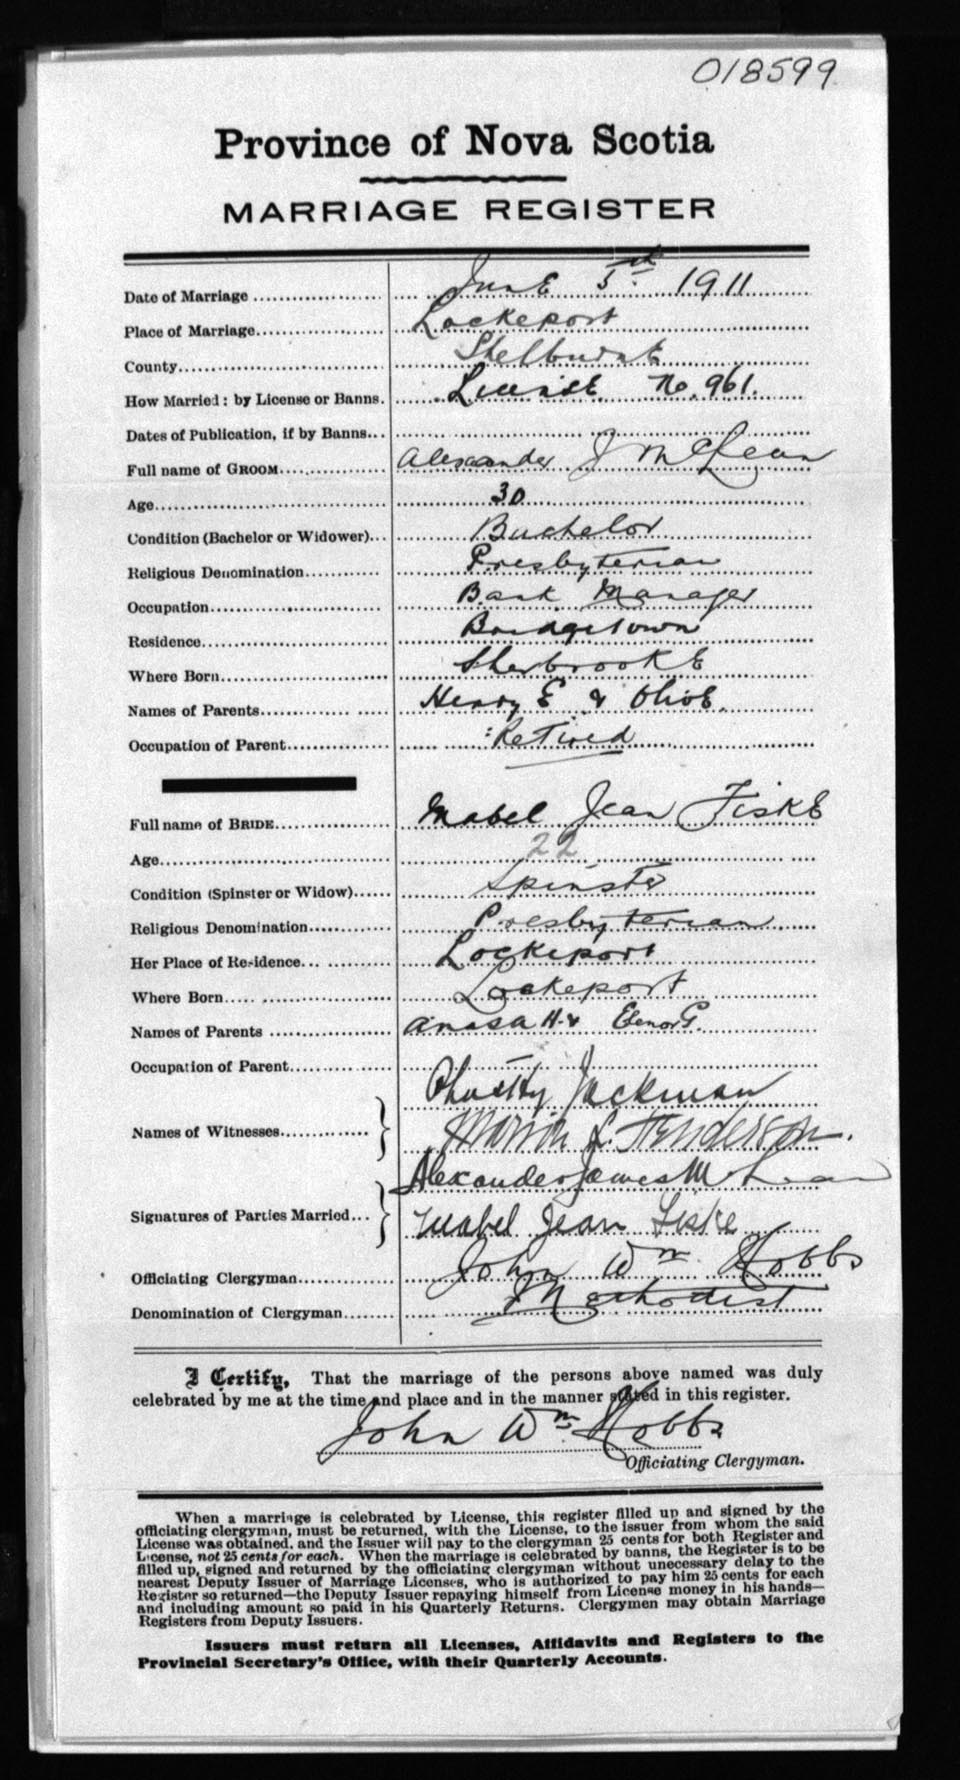 018599
Province of Nova Scotia
MARRIAGE REGISTER
Date of Marriage June 5th 1911
Place of Marriage Lockeport
County Shelburne
How Married: by License or Banns. License No. 961.
Dates of Publication, if by Banns
Full name of GROOM Alexander J McLean
Age 30
Condition (Bachelor or Widower) Bachelor
Religious Denomination Presbyterian
Occupation Bank Manager
Residence Bridgetown
Where Born Sherbrooke
Names of Parents Henry E & Olive.
Occupation of Parent Retired
Full name of BRIDE Mabel Jean Fiske
Age 22
Condition (Spinster or Widow) Spinster
Religious Denomination Presbyterian
Her Place of Residence Lockeport
Where Born Lockeport
Names of Parents H. & G.
Occupation of Parent
Jackman
Names of Witnesses Marion L. Henderson.
Alexander James McLean
Signatures of Parties Married Mabel Jean Fiske
Officiating Clergyman John Wm Hobbs
Denomination of Clergyman Methodist
I Certify, That the marriage of the persons above named was duly
celebrated by me at the time and place and in the manner stated in this register.
John Wm Hobbs
Officiating Clergyman.
When a marriage is celebrated by License, this register filled up and signed by the
officiating clergyman, must be returned, with the License, to the issuer from whom the said
License was obtained, and the Issuer will pay to the clergyman 25 cents for both Register and
License, not 25 cents for each. When the marriage is celebrated by banns, the Register is to be
filled up, signed and returned by the officiating clergyman without unecessary delay to the
nearest Deputy Issuer of Marriage Licenses, who is authorized to pay him 25 cents for each
Register so returned—the Deputy Issuer repaying himself from License money in his hands—
and including amount so paid in his Quarterly Returns. Clergymen may obtain Marriage
Registers from Deputy Issuers.
Issuers must return all Licenses, Affidavits and Registers to the
Provincial Secretary's Office, with their Quarterly Accounts.